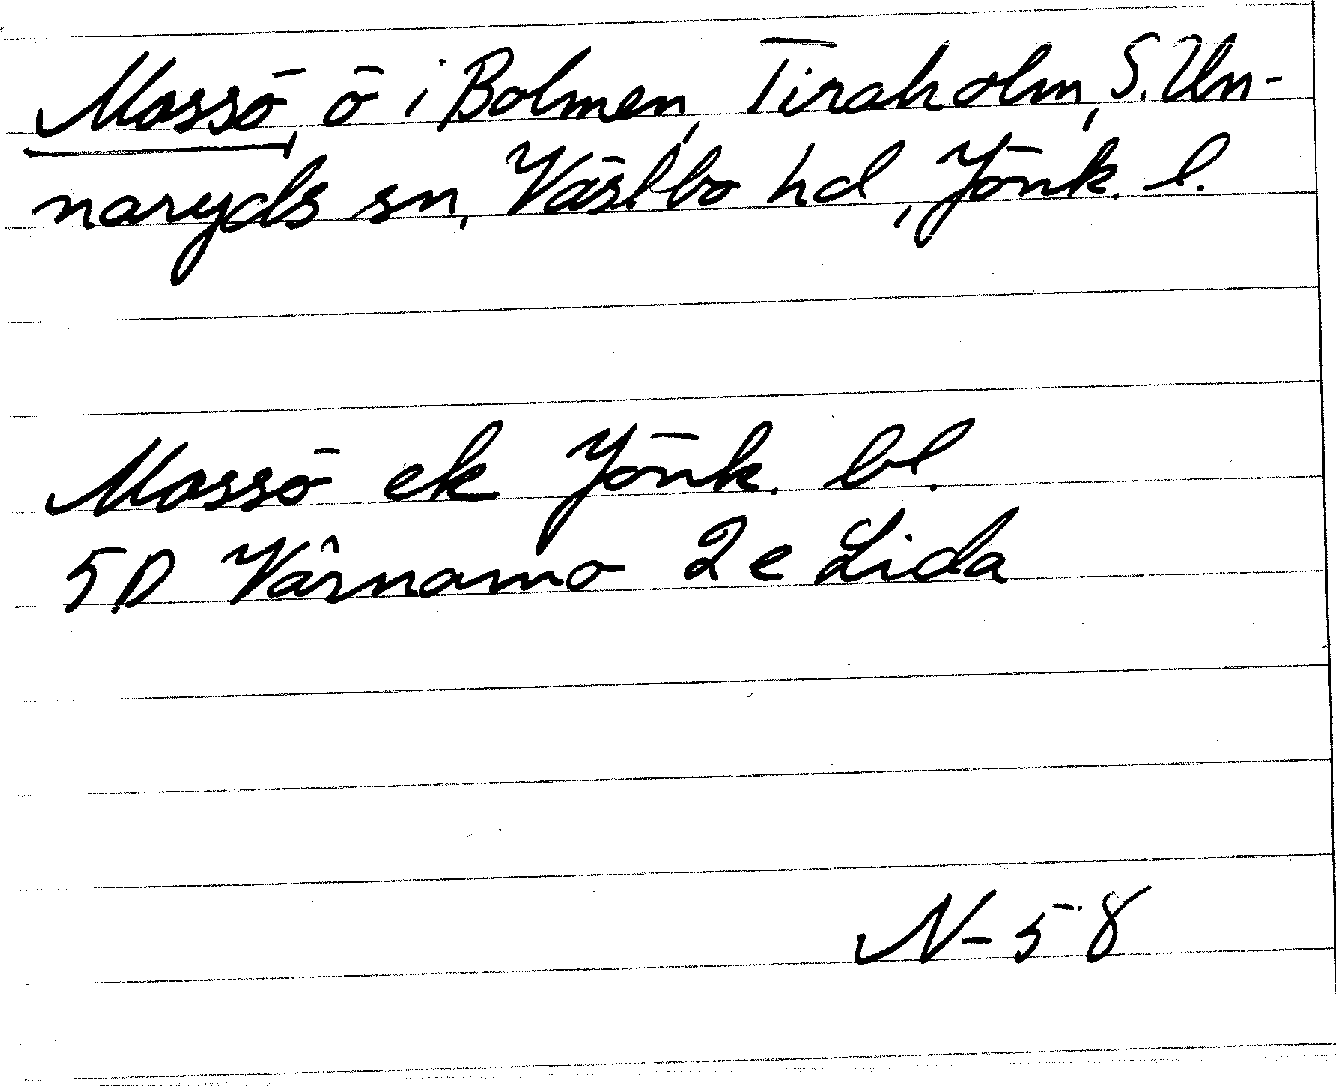 Mossö, ö i Bolmen, Tiraholm, S. Un-
naryds sn, Västbo hd, Jönk. l.
Mossö ek Jönk. bl.
5D Värnamo 2e Lida
N-58